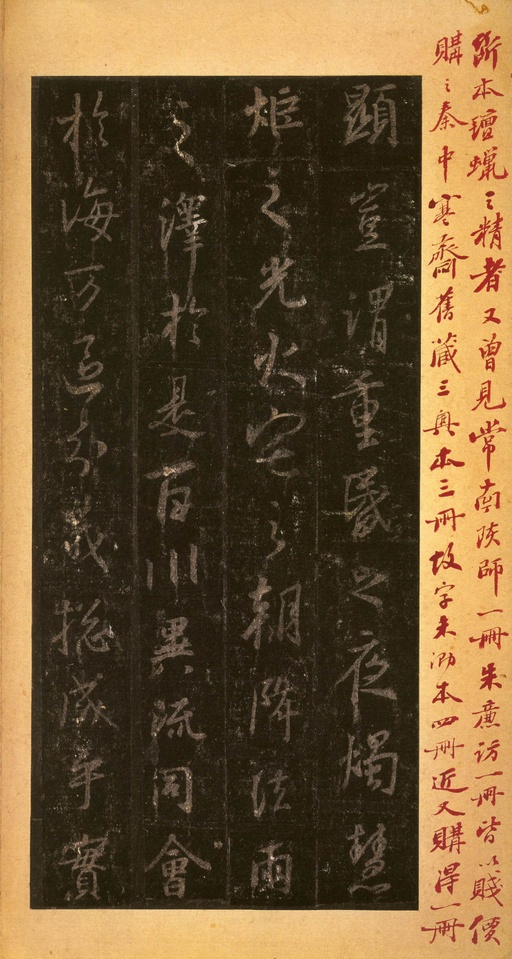 斷本壇蠟之精者又曾見常南陔師一冊朱廉訪一冊皆以賤價
購之秦中寒齋舊藏三與本三冊故字未泐本四冊近又購得一冊
顯豈謂重昬之夜燭慧
炬之光火宅之朝降法雨
之澤於是百川異流同會
於海万區分義揔成乎實